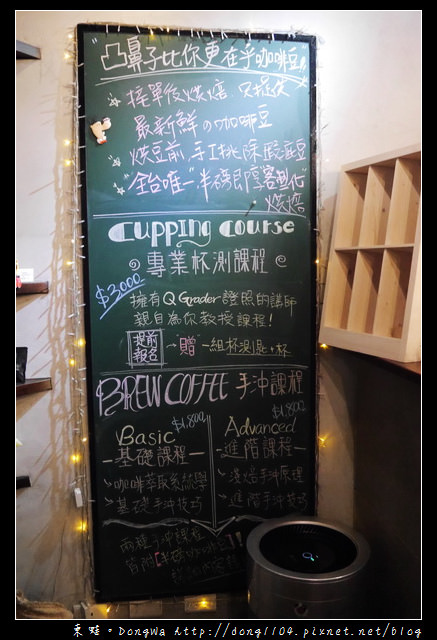 "凸鼻子比你更在乎咖啡豆"
☆接單後烘焙 只提供
最新鮮の咖啡豆
☆烘豆前,手工挑除瑕疵豆
☆"全台唯一"半磅即享客製化
烘焙
Cupping Course
專業杯測課程
$3,000
擁有Q Grader證照的講師
親自為你教授課程!
提前報名→贈 一組杯測匙+杯
BREW COFFEE 手沖課程
$1,800
$1,800
Basic
基礎課程
咖啡萃取系統學
基礎手沖技巧
Advanced
進階課程
進階手沖技巧
兩種手沖課程
東蛙。DongWa http://dong1104.pixnet.net/blog